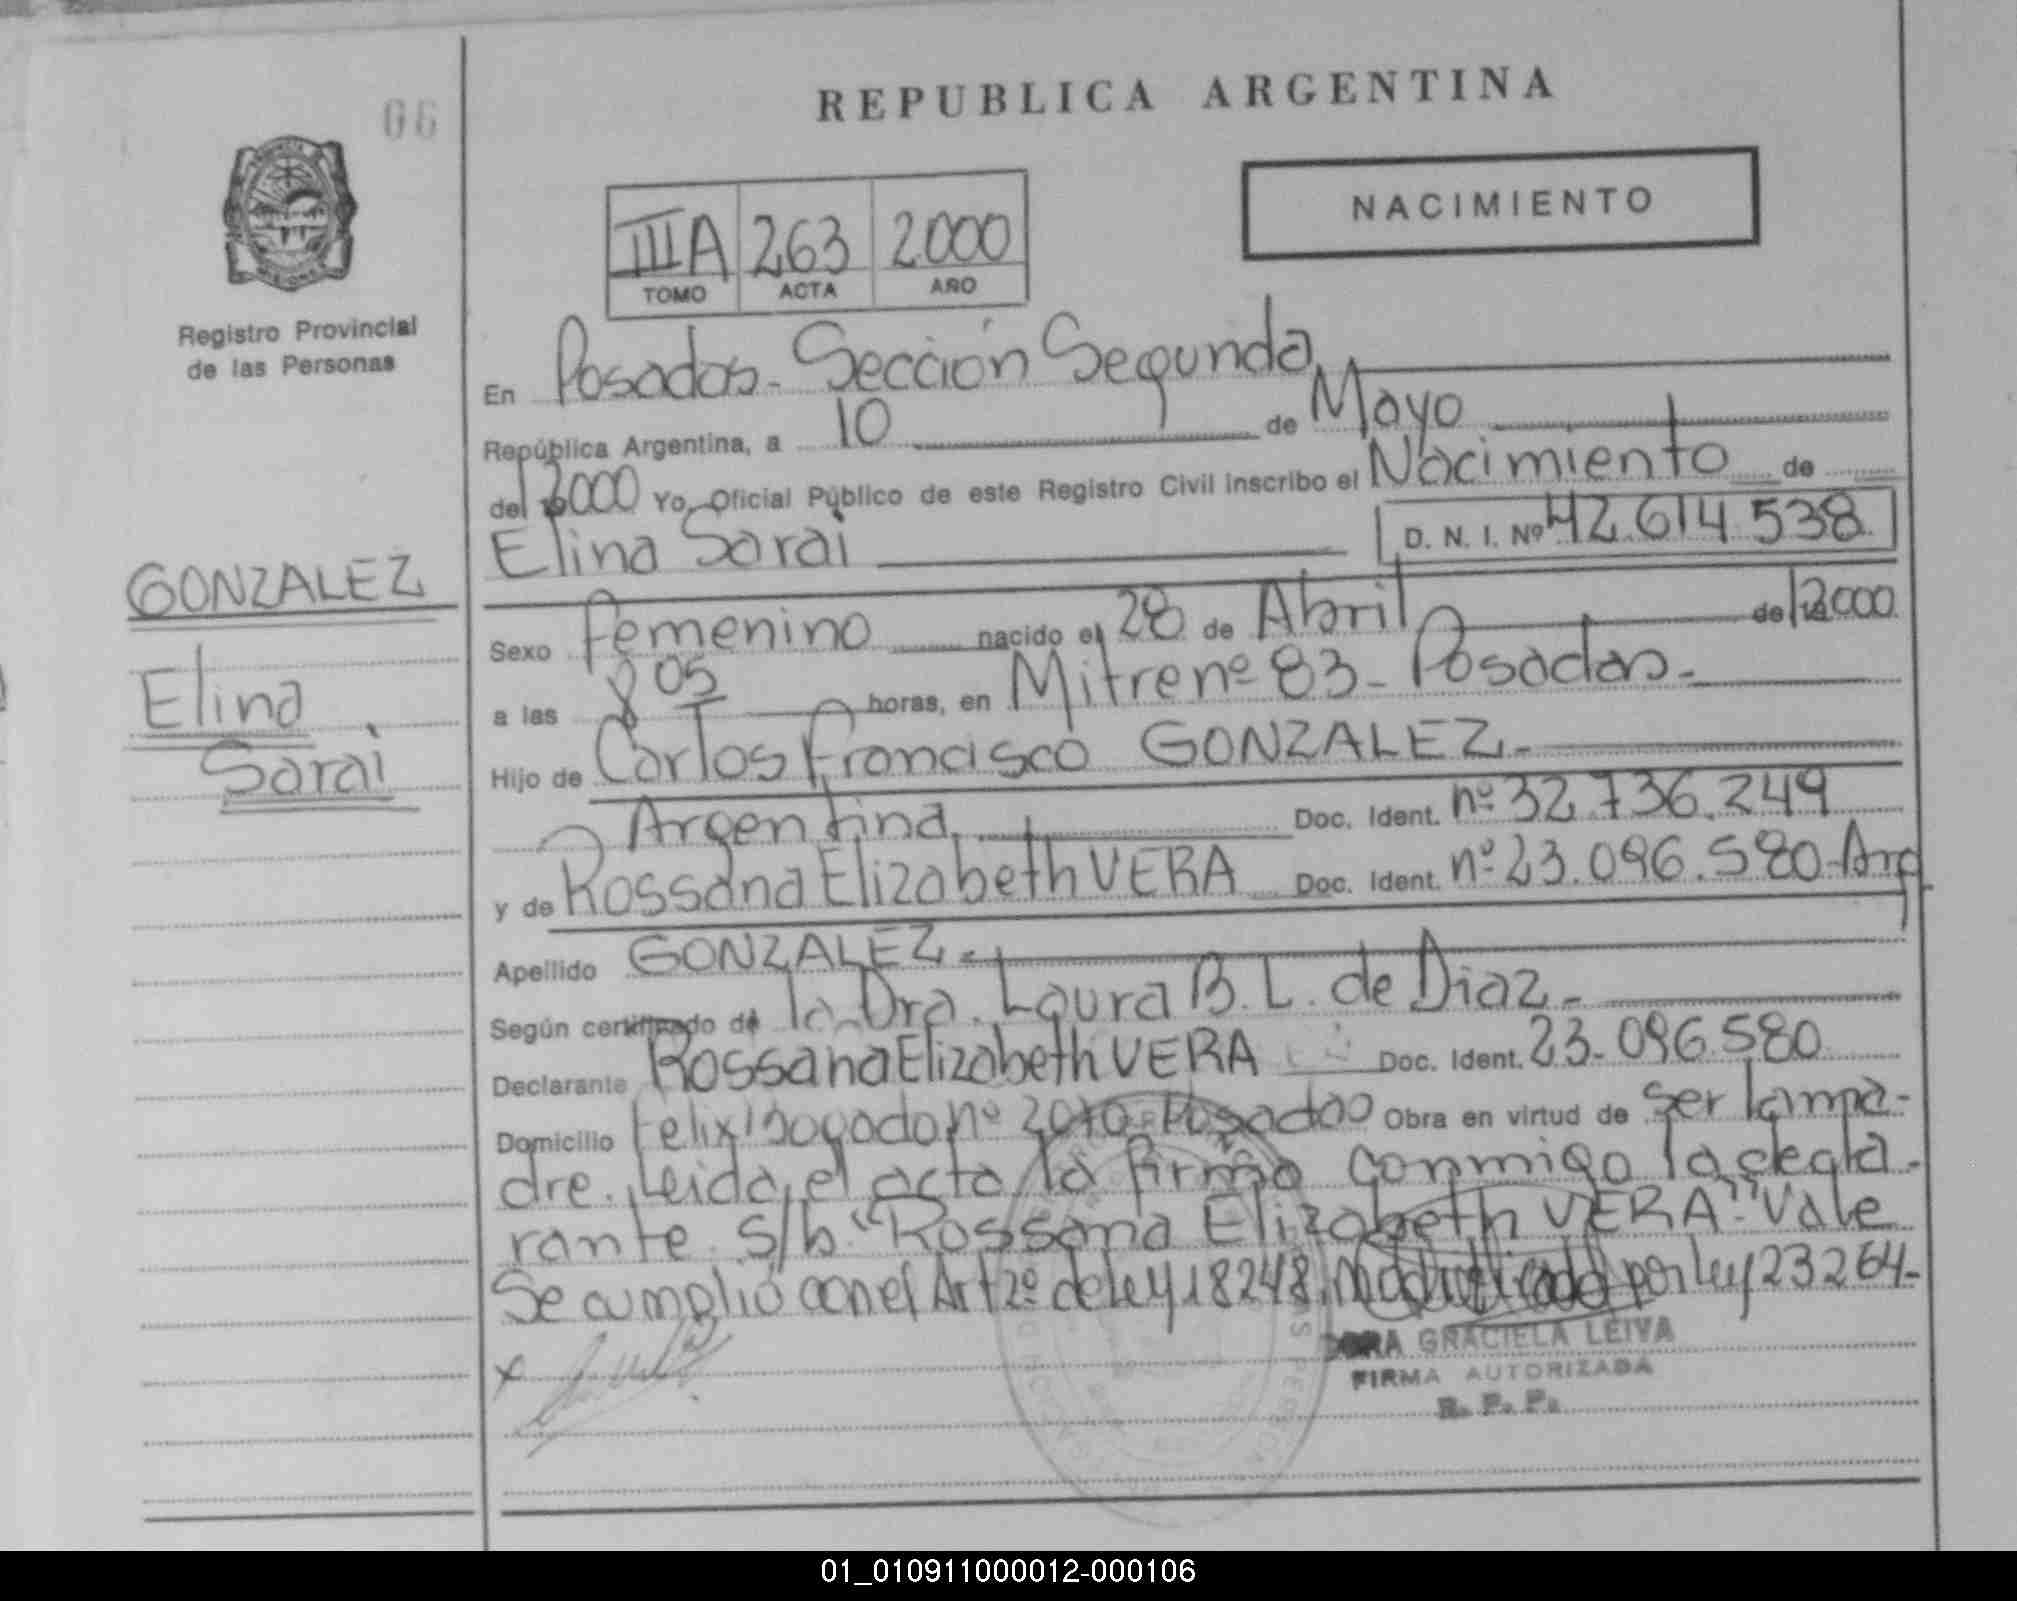 66
REPUBLICA ARGENTINA
NACIMIENTO
IIIA 263 2000
TOMO ACTA AÑO
Registro Provincial
de las Personas
En Posadas - Sección Segunda
República Argentina, a 10 de Mayo
del 2000 Yo, Oficial Público de este Registro Civil inscribo el Nacimiento de
Elina Sarai D. N. I. Nº 42.614.538
GONZALEZ
Elina
Sarai
Sexo Femenino nacido el 28 de Abril de 2000
a las 8 05 horas, en Mitre nº 83 - Posadas -
Hijo de Carlos Francisco GONZALEZ -
Argentina Doc. Ident. nº 32.736.249
y de Rossana Elizabeth VERA Doc. Ident. nº 23.096.580 - Arg
Apellido GONZALEZ -
Según certificado de la Dra. Laura B. L. de Diaz -
Declarante Rossana Elizabeth VERA Doc. Ident. 23.096.580
Domicilio Felix Bogado nº 2010 Posadas Obra en virtud de ser la ma-
dre. Leida el acta la firma conmigo la decla-
rante s/b "Rossana Elizabeth VERA" Vale
Se cumplió con el Art 2º de ley 18248 Modificado por ley 23264 -
x
DORA GRACIELA LEIVA
FIRMA AUTORIZADA
R. P. P.
01_010911000012-000106